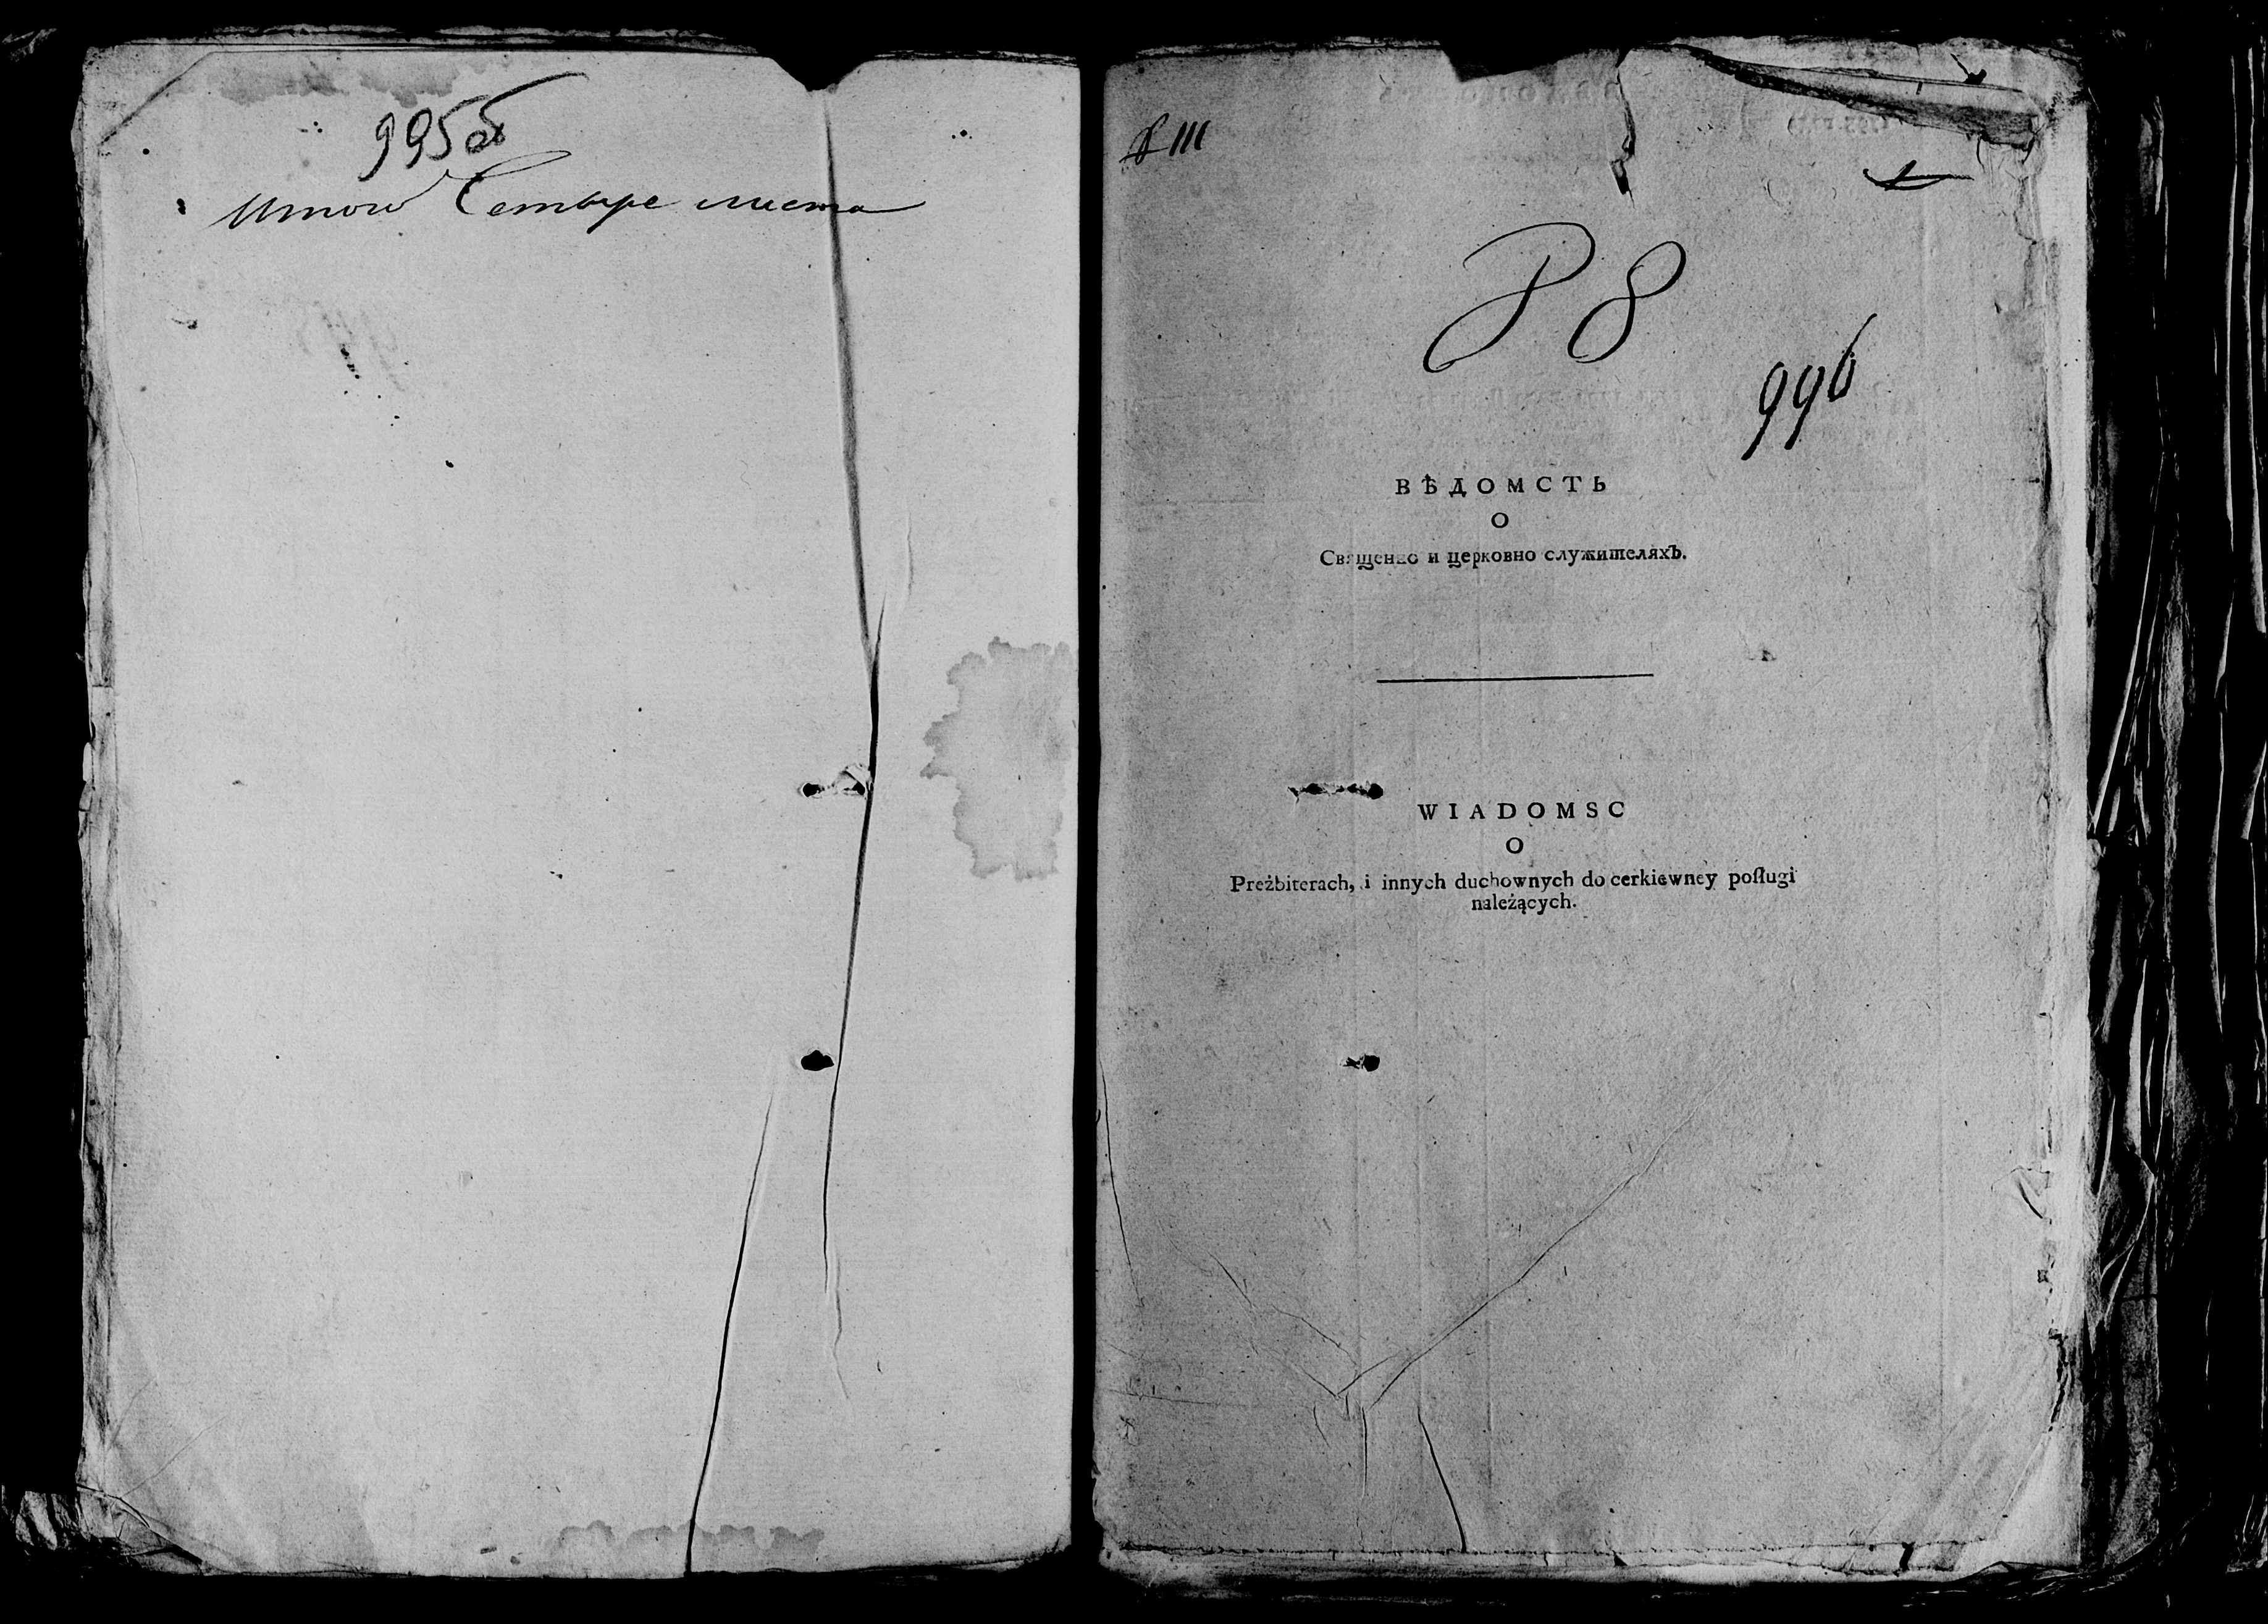 995об
Итого Четыре листа
№ 111
1
Р 8
996
ВѢДОМСТЬ
О
Священно и церковно служителяхъ.
WIADOMSC
O
Preżbiterach, i innych duchownych do cerkiewney poſlugi
należących.